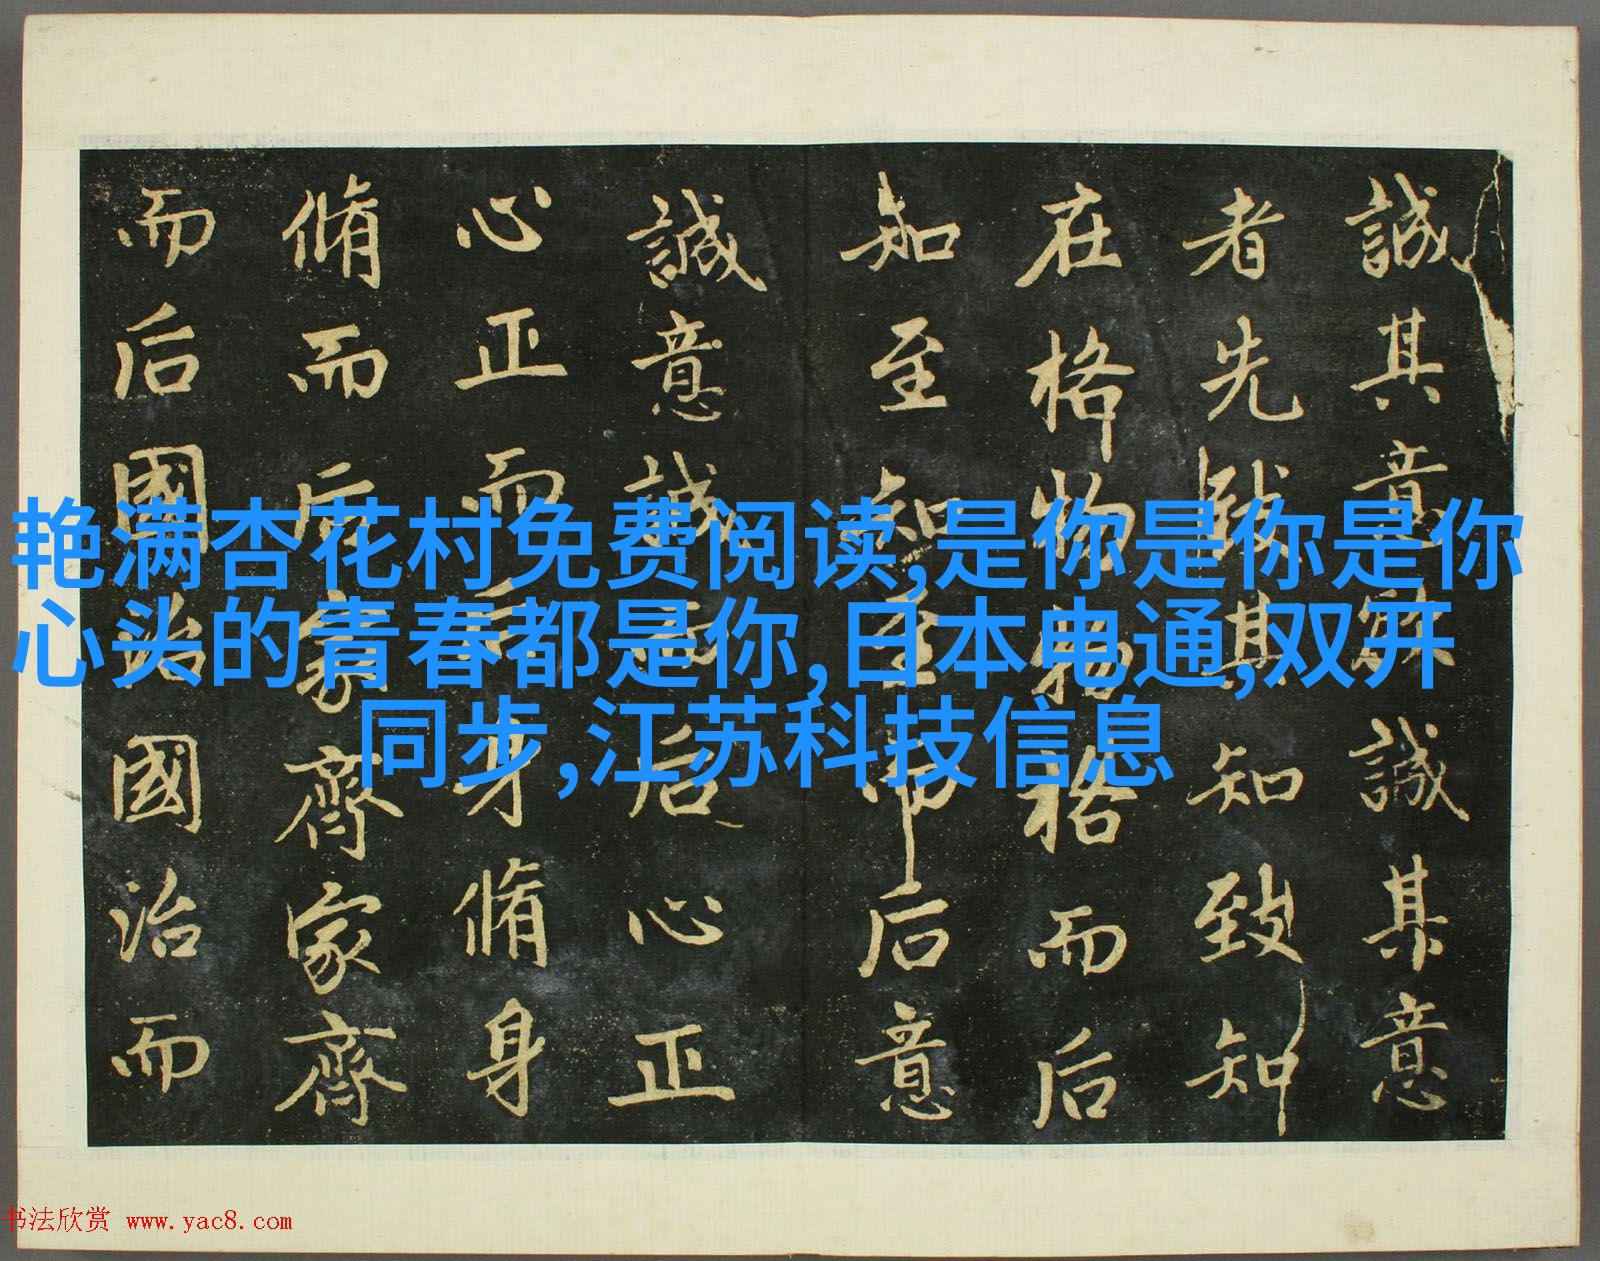 誠其意欲誠其意
者先致其知致知
在格物物格而后
知至知至而后意
誠意誠而后心正
心正而后身脩身
脩而后家齊家齊
而后國治國治而
艳满杏花村免费阅读,是你是你是你
心头的青春都是你,日本电通,双开
同步,江苏科技信息
书法欣赏 www.yac8.com